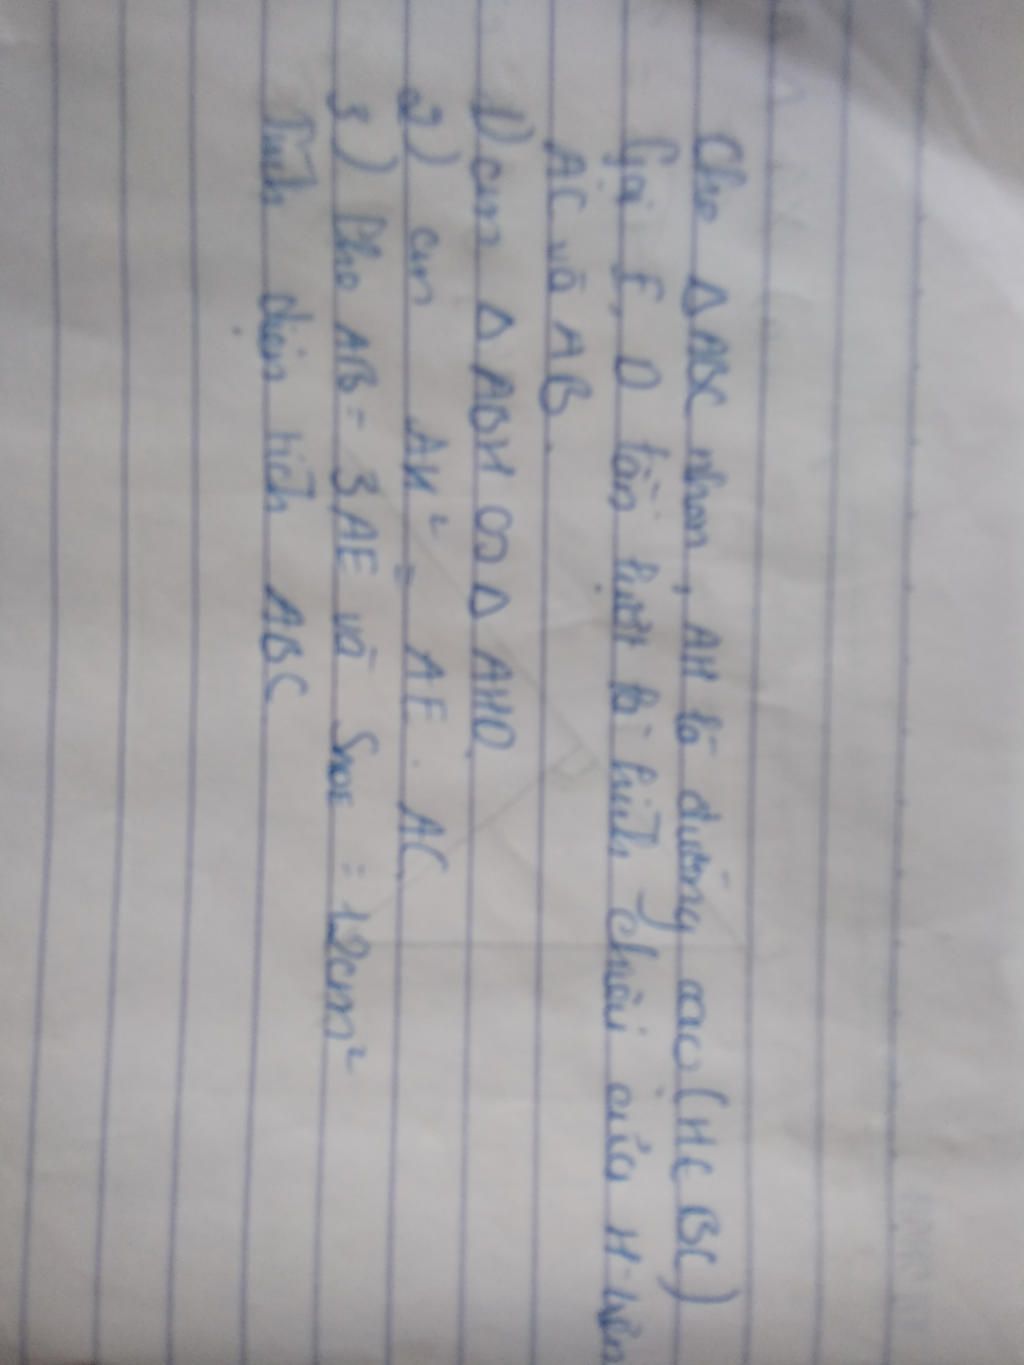 Cho △ABC nhọn, AH là đường cao (H∈BC)
Gọi E, D lần lượt là hình chiếu của H lên
AC và AB.
1) cm △ABH ∽ △AHD.
2) cm AH² = AE . AC.
3) Cho AB = 3AE và = 12cm²
Tính diện tích ABC